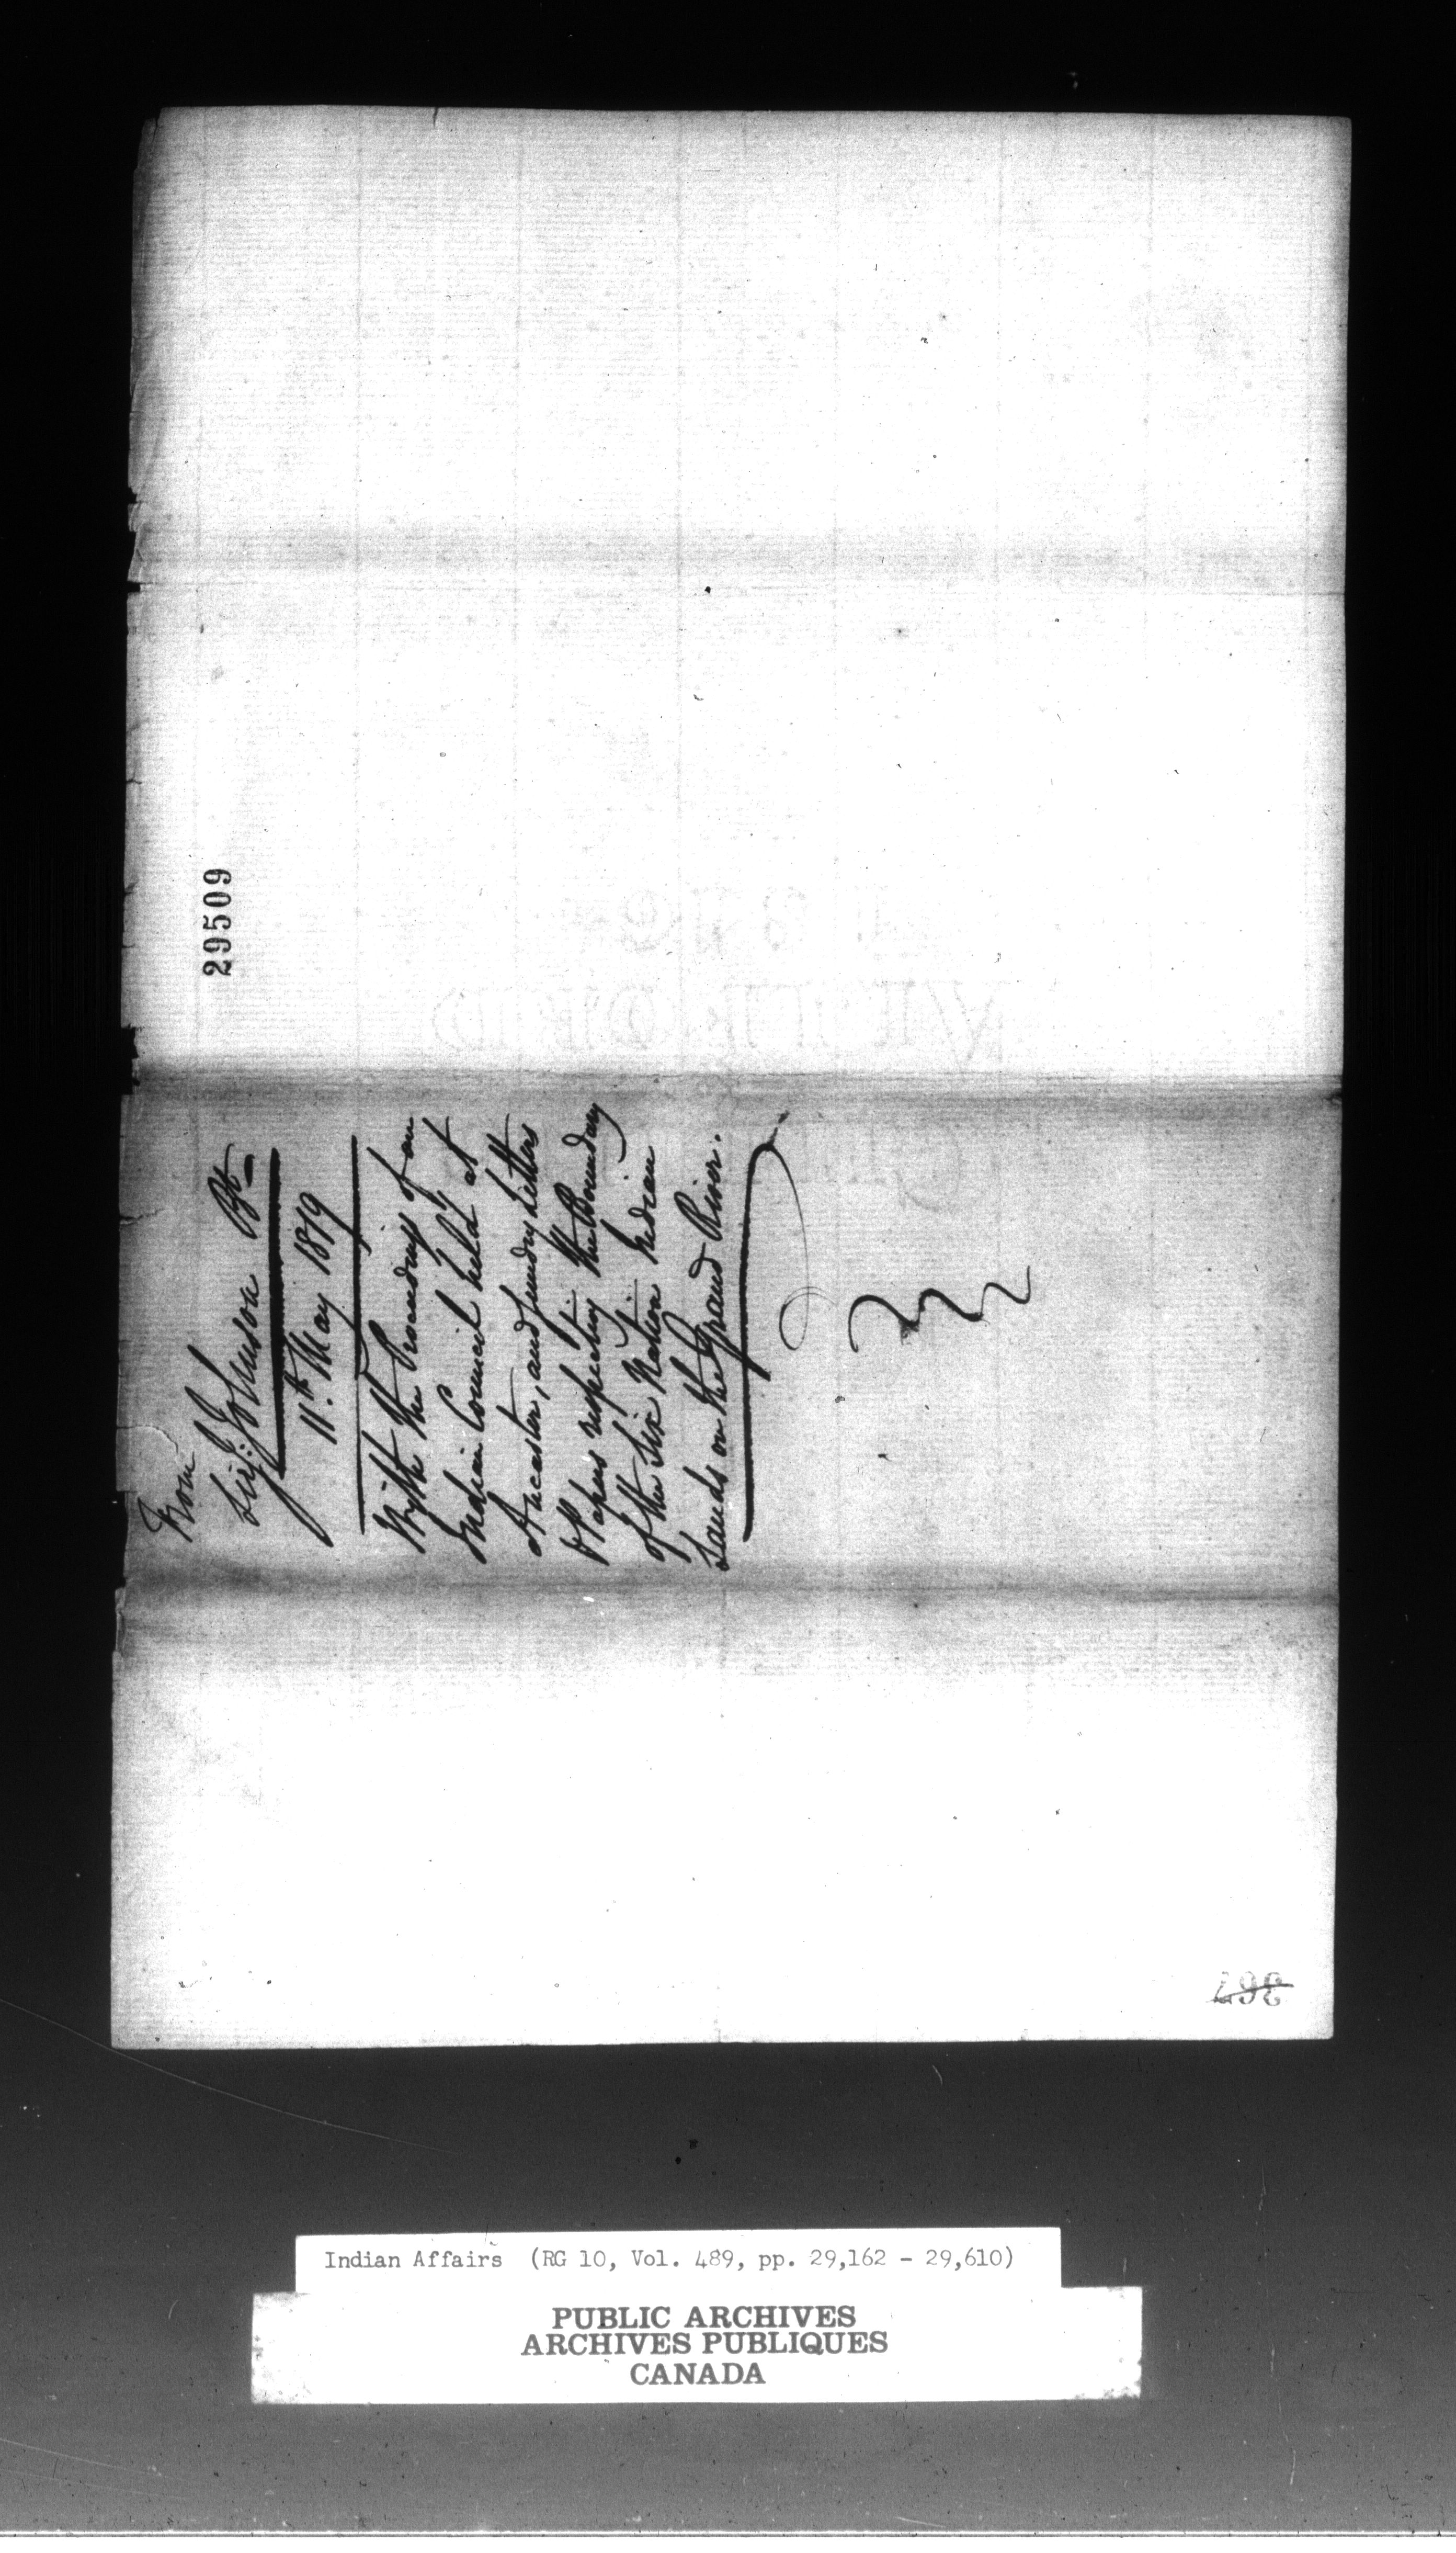 29509
From
Sir J: Johnson Bt
11th. May 1819
With the Proceedings of an
Indian Council held at
Ancaster, and sundry Letters
& Papers respecting the Boundary
of the Six Nation Indian
Lands on the Grand River.
367
Indian Affairs (RG 10, Vol. 489, pp. 29,162 - 29,610)
PUBLIC ARCHIVES
ARCHIVES PUBLIQUES
CANADA